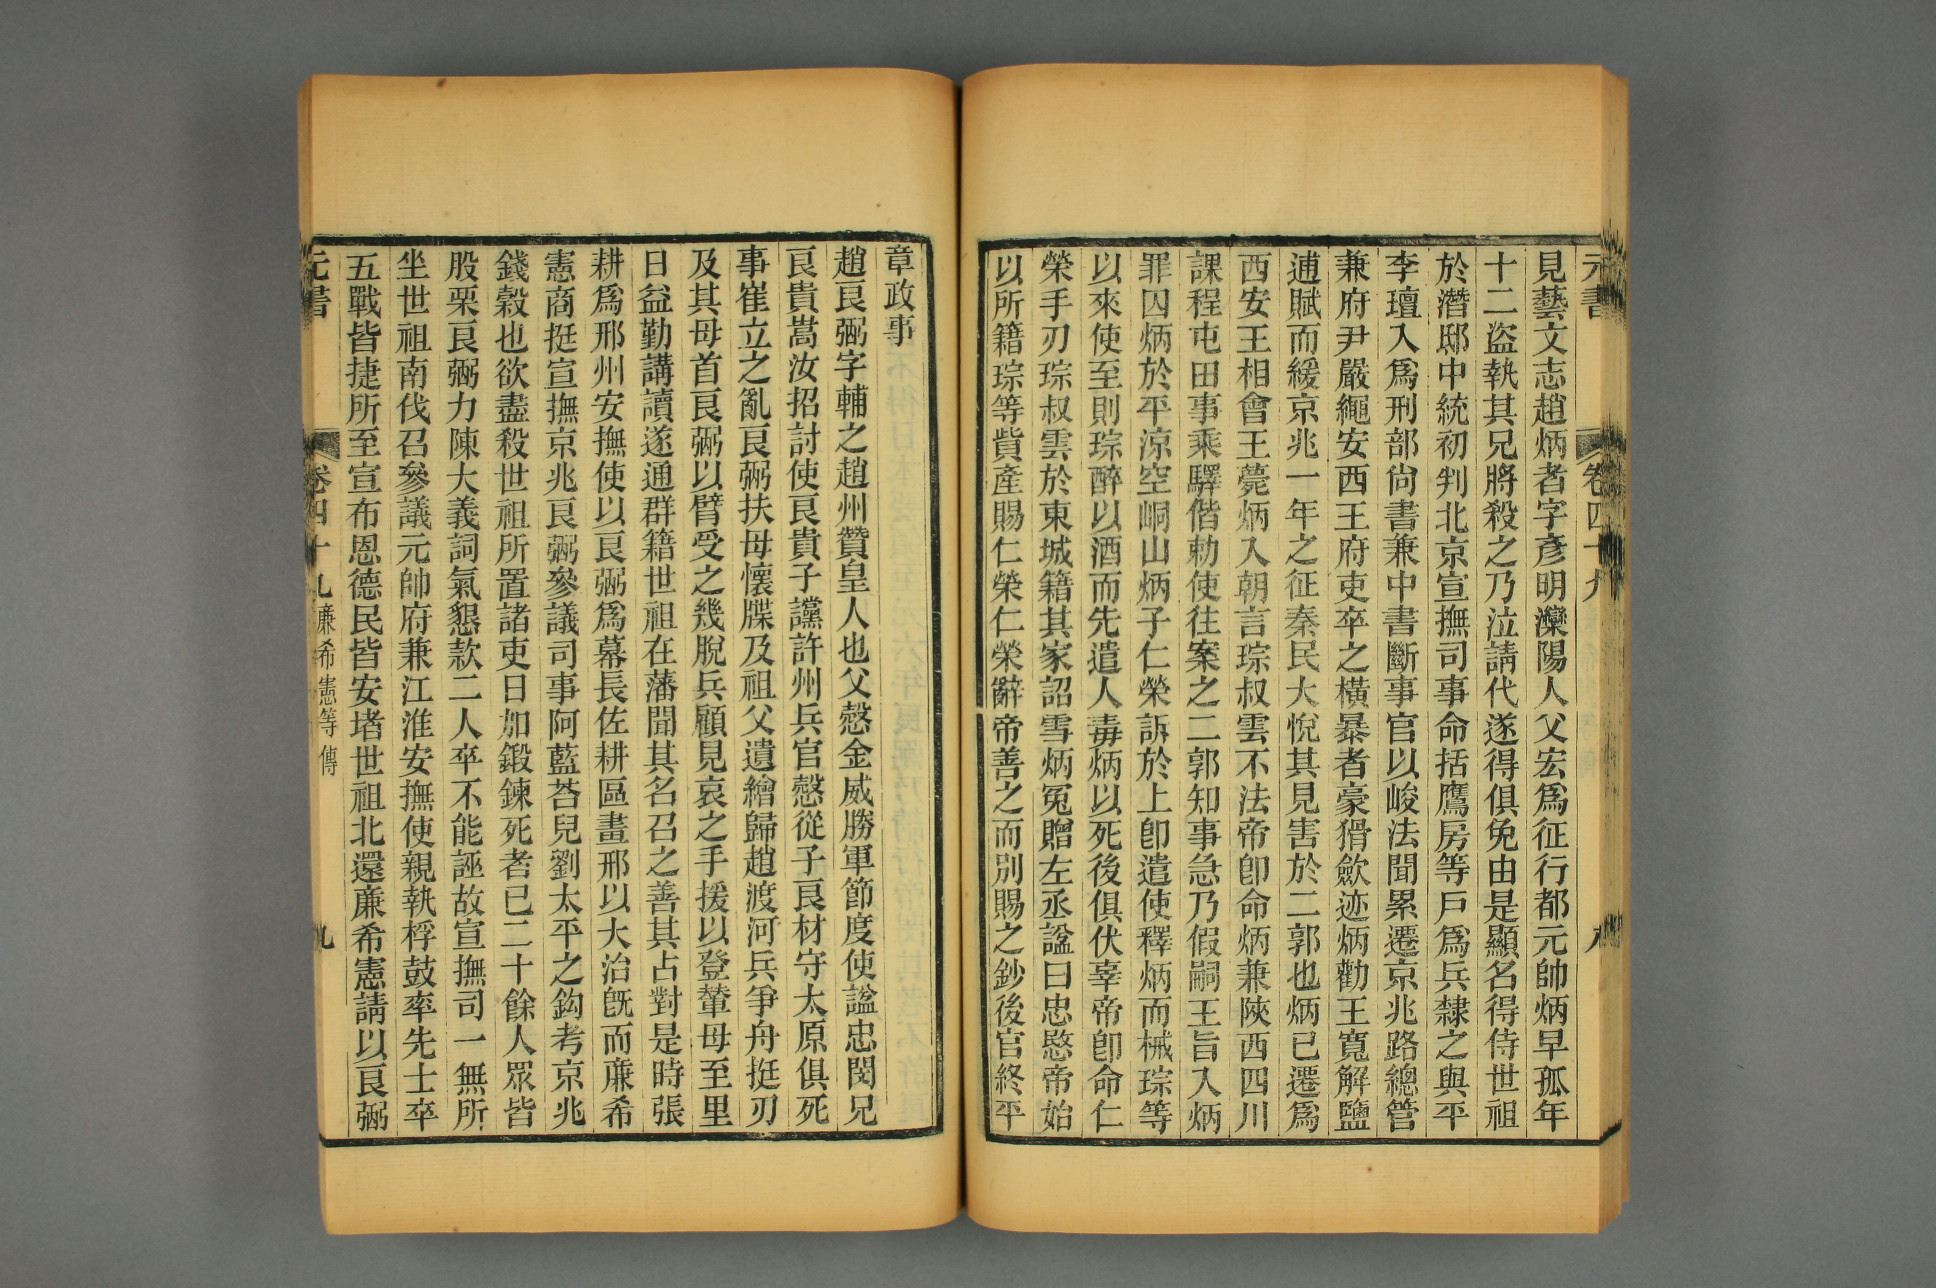 元書 卷四十九 八
見藝文志趙炳者字彥明灤陽人父宏爲征行都元帥炳早孤年
十二盜執其兄將殺之乃泣請代遂得俱免由是顯名得侍世祖
於潛邸中統初判北京宣撫司事命括鷹房等戶爲兵隸之與平
李璮入爲刑部尚書兼中書斷事官以峻法聞累遷京兆路總管
兼府尹嚴繩安西王府吏卒之橫暴者豪猾歛迹炳勸王寬解鹽
逋賦而緩京兆一年之征秦民大悅其見害於二郭也炳已遷爲
西安王相會王薨炳入朝言琮叔雲不法帝卽命炳兼陝西四川
課程屯田事乘驛偕勅使往案之二郭知事急乃假嗣王旨入炳
罪囚炳於平涼空峒山炳子仁榮訴於上卽遣使釋炳而械琮等
以來使至則琮醉以酒而先遣人毒炳以死後俱伏辜帝卽命仁
榮手刃琮叔雲於東城籍其家詔雪炳冤贈左丞諡曰忠愍帝始
以所籍琮等貲產賜仁榮仁榮辭帝善之而別賜之鈔後官終平
章政事
趙良弼字輔之趙州贊皇人也父愨金威勝軍節度使諡忠閔兄
良貴嵩汝招討使良貴子讜許州兵官愨從子良材守太原俱死
事崔立之亂良弼扶母懷牒及祖父遺繪歸趙渡河兵爭舟挺刃
及其母首良弼以臂受之幾脫兵顧見哀之手援以登輦母至里
日益勤講讀遂通群籍世祖在藩聞其名召之善其占對是時張
耕爲邢州安撫使以良弼爲幕長佐耕區畫邢以大治旣而廉希
憲商挺宣撫京兆良弼參議司事阿藍荅兒劉太平之鈎考京兆
錢穀也欲盡殺世祖所置諸吏日加鍛鍊死者已二十餘人眾皆
股栗良弼力陳大義詞氣懇款二人卒不能誣故宣撫司一無所
坐世祖南伐召參議元帥府兼江淮安撫使親執桴鼓率先士卒
五戰皆捷所至宣布恩德民皆安堵世祖北還廉希憲請以良弼
元書 卷四十九 廉希憲等傳 九